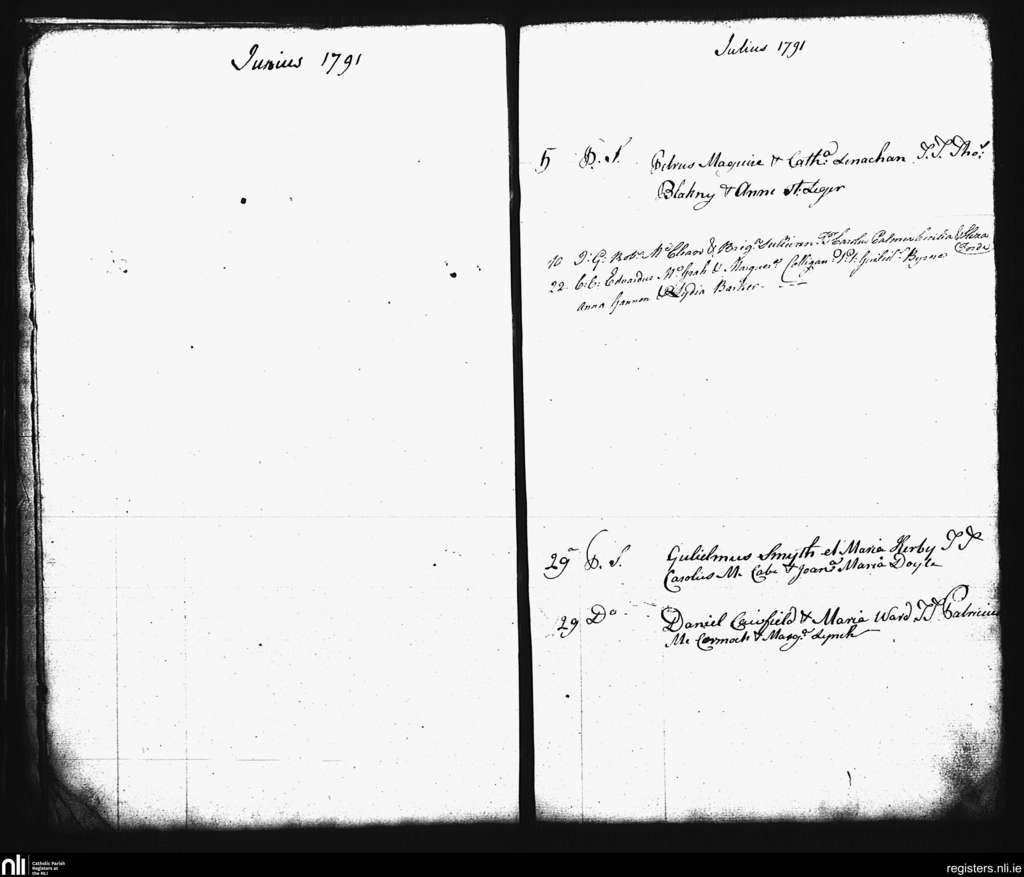 Junius 1791
Julius 1791
5 P. S. Petrus Maguire & Cath.a Lenachan T.T. Tho.s
Blakny & Anne St. Leger
10 D: G: Rob.t Mc Cleave & Brig.a Sullivan. TT Carolus Palmer Cecilia
22 C:C: Eduardus Mc Grah & Margret.a Colligan. T.T. Guliel.s Byrne
Anna Gannon & Lydia Barker.
29 P. S. Gulielmus Smyth et Maria Kerby T T
Carolus Mc Cabe & Joan.a Maria Doyle
29 Do Daniel & Maria Ward TT Patricius
Mc Cormock & Marg.t Lynch
nli
Catholic Parish
Registers at
the NLI
registers.nli.ie